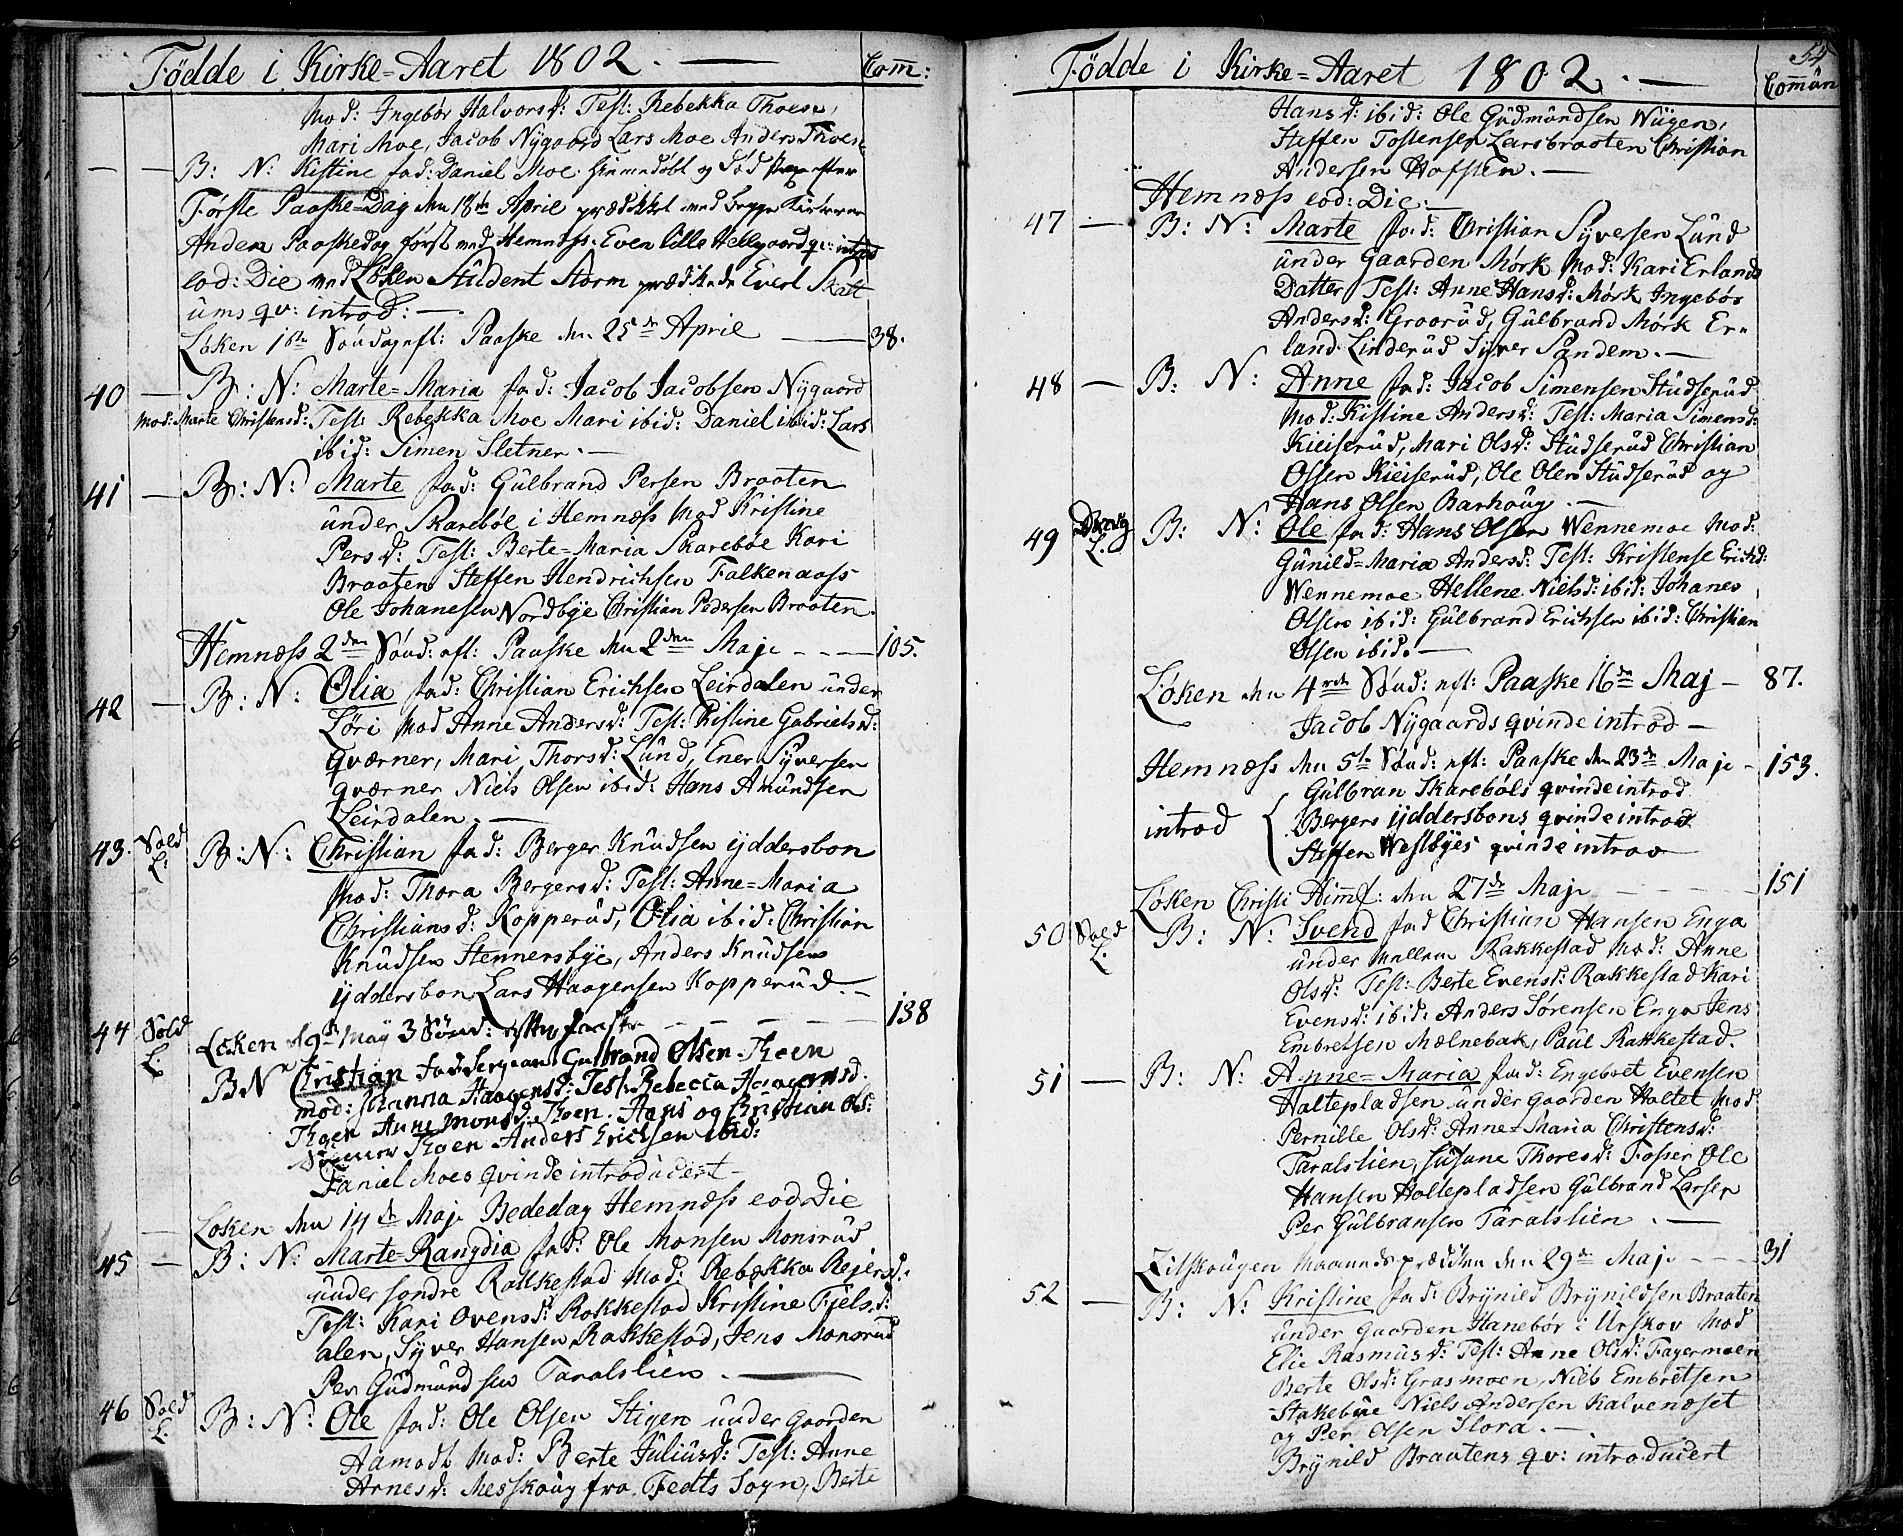 Födde i Kirke=Aaret 1802. — Com̄:
Mod: Ingebør Halvorsd: Test: Rebekka Thoen,
Mari Moe, Jacob Nygaard Lars Moe Anders Thoen
B: N: Kistine fad: Daniel Moe hiemmedøbt og død
Forste Paaske=Dag den 18de April prædiket med begge Kirkerne
Anden Paaskedag først med Hemness. Even lille Hellgaard qv: introd
eod: Die med Löken Student Storm prædikede Evert Skatt
ums qv: introd: —
Løken 1ste Søndag eft: Paaske den 25de April — 38.
40 — B: N: Marte=Maria fad: Jacob Jacobsen Nygaard
Mod: Marte Christensd: Test: Rebekka Moe Mari ibid: Daniel ibid: Lars
ibid: Simen Sletner. —
41 — B: N: Marte fad: Gülbrand Persen Braaten
under Skareböl i Hemness Mod Kristine
Persd: Test: Berte=Maria Skareböe Kari
Braaten Steffen Hendrichsen Falkenaass
Ole Johanesen Nordbye Christian Pedersen Braaten.
Hemnæss 2den Sönd: eft: Paaske den 2den Maje - - - 105.
42 — B: N: Olia fad: Christian Erichsen Leirdalen under
Löri Mod Anne Andersd: Test: Kistine Gabrielsd:
qværner, Mari, Thorsd: Lünd, Ener Syversen
qværner Niels Olsen ibid: Hans Amündsen
Leirdalen. —
43. Sold L: B: N: Christian fad: Berger Knüdsen ÿddersbon
Mod: Thora Bergersd: Test: Anne=Maria
Christiansd: Kopperüd, Olia ibid: Christian
Knüdsen Stennersbÿe, Anders Knüdsen
ÿddersbon Lars Haagensen Kopperüd. —
44 Sold L: Löken d 9de May 3 Sönd: efter paaske - - - 138
B N Christian fad Sergeant Gulbrand Olsen Thoen
mod: Johanna Haagensd: Test: Rebecca Haagensd.
Thoen Anne Monsd: Thoen. Hans og Cristian Ols:
Thoen Anders Erichsen ibid:
Daniel Moes qvinde introducert —
Løken den 14de Maje Bededag Hemnæss eod: Die
45 — B: N: Marte=Rangdia fad: Ole Monsen Monsrüd
under søndre Rakkestad Mod: Rebekka Rejersd:
Test: Kari Ovensd: Rakkestad Kristine Fjelsd:
alen, Syver Hansen Rakkestad, Jens Monsrüd
Per Güdmündsen Taralslien. —
46 Sold L: B: N: Ole fad: Ole Olsen Stigen under Gaarden
Aamodt Mod: Berte Juliusd: Test: Anne
Arnesd: Messkoug fra Fedts Sogn, Berte
54
Födde i Kirke=Aaret 1802. — Com̄ün
Hansd: ibid: Ole Güdmündsen Wügen,
Steffen Tostensen Larsbraaten Christian
Andersen Hofsten. —
Hemnæss eod: Die: —
47 — B: N: Marte fad: Christian Syversen Lünd
ünder Gaarden Mörk Mod: Kari Erlands
Datter Test: Anne Hansd: Mørk Ingebör
Andersd: Groorüd, Gülbrand Mörk Er=
land Linderüd Syver Sandem. —
48 — B: N: Anne fad: Jacob Simensen Stüdserüd
Mod: Kistine Andersd: Test: Maria Simensd:
Kieiserüd, Mari Olsd: Stüdserüd Christian
Olsen Kieiserüd, Ole Olsen Stüdserüd og
Hans Olsen Barhoug —
49 Dreng L: B: N: Ole fad: Hans Olsen Wennemoe Mod:
Günild=Maria Andersd: Test: Kristense Erichsd:
Wennemoe Hellene Nielsd: ibid: Johanes
Olsen ibid: Gülbrand Erichsen ibid: Christian
Olsen ibid. —
Löken den 4rde Sönd: eft: Paaske 16de Maj — 87.
Jacob Nÿgaards qvinde introd —
Hemnæss den 5te Sönd: eft: Paaske den 23de Maje - 153.
Gülbran Skareböls qvinde introd
introd { Bergers ÿddersbons qvinde introd
Steffen Westbÿes qvinde introd
Löken Christi Him̄f: den 27de Maje - - - - 151
50 Sold L: B: N: Svend fad Christian Hansen Enga
under Mellem Rakkestad Mod: Anne
Olsd: Test: Berte Evensd: Rakkestad Kari
Evensd: ibid: Anders Sörensen Enga Jens
Embretsen Mælnebak, Paul Rakkestad.
51 — B: N: Anne=Maria fad: Engebret Evensen
Haltepladsen under Gaarden Holtet Mod:
Pernille Olsd: Anne=Maria Christensd:
Taralslien, Susane Thoresd: Fosser Ole
Hansen Holtepladsen Gülbrand Larsen
Per Gülbransen Taralslien. —
Lilskougen Maanedsprædiken den 29de Maje - - 31
52 — B: N: Kristine fad: Brÿnild Brÿnildsen Braaten
under Gaarden Hanebör i Urskov Mod
Elie Rasmüsd: Test: Anne Olsd: Fagermoen
Berte Olsd: Grasmoen, Niels Embretsen
Stakebÿe Niels Andersen Kalvenæset
og Per Olsen Slora. —
Brÿnild Braatens qv: introducert